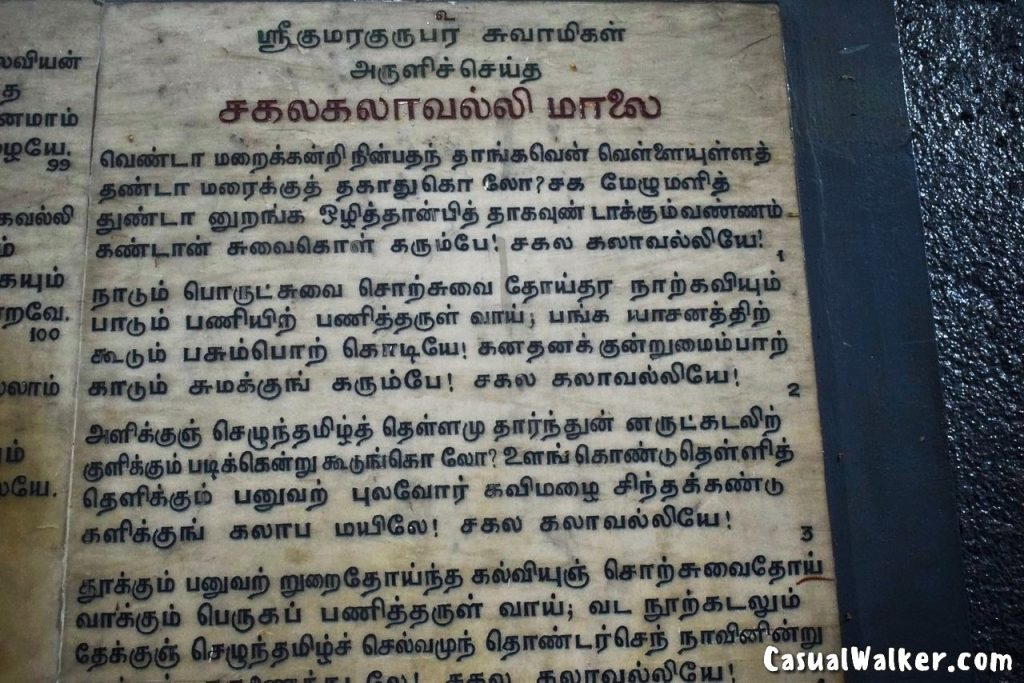 லவியன்
த
னமாம்
ழையே.
99
கவல்லி
ம்
கையும்
றவே.
100
லலாம்
ும்
யே.
உ
ஸ்ரீகுமரகுருபர சுவாமிகள்
அருளிச்செய்த
சகலகலாவல்லி மாலை
வெண்டா மறைக்கன்றி நின்பதந் தாங்கவென் வெள்ளையுள்ளத்
தண்டா மரைக்குத் தகாதுகொ லோ? சக மேழுமளித்
துண்டா னுறங்க ஒழித்தான்பித் தாகவுண் டாக்கும்வண்ணம்
கண்டான் சுவைகொள் கரும்பே! சகல கலாவல்லியே!
1
நாடும் பொருட்சுவை சொற்சுவை தோய்தர நாற்கவியும்
பாடும் பணியிற் பணித்தருள் வாய்; பங்க யாசனத்திற்
கூடும் பசும்பொற் கொடியே! கனதனக் குன்றுமைம்பாற்
காடும் சுமக்குங் கரும்பே! சகல கலாவல்லியே!
2
அளிக்குஞ் செழுந்தமிழ்த் தெள்ளமு தார்ந்துன் னருட்கடலிற்
குளிக்கும் படிக்கென்று கூடுங்கொ லோ? உளங் கொண்டுதெள்ளித்
தெளிக்கும் பனுவற் புலவோர் கவிமழை சிந்தக்கண்டு
களிக்குங் கலாப மயிலே! சகல கலாவல்லியே!
3
தூக்கும் பனுவற் றுறைதோய்ந்த கல்வியுஞ் சொற்சுவைதோய்
வாக்கும் பெருகப் பணித்தருள் வாய்; வட நூற்கடலும்
தேக்குஞ் செழுந்தமிழ்ச் செல்வமுந் தொண்டர்செந் நாவினின்று
சகல கலாவல்லியே!
CasualWalker.com